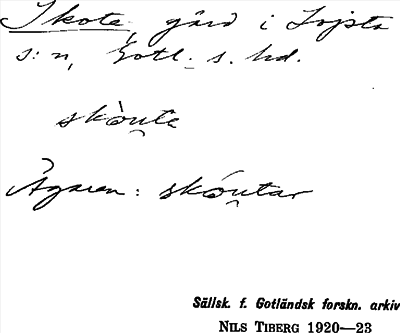 Skote, gård i Lojsta
s:n, Gotl. s. hd.
skòu̯te
Ägaren: skóu̯tar
Sällsk. f. Gotländsk forskn. arkiv
NILS TIBERG 1920—23